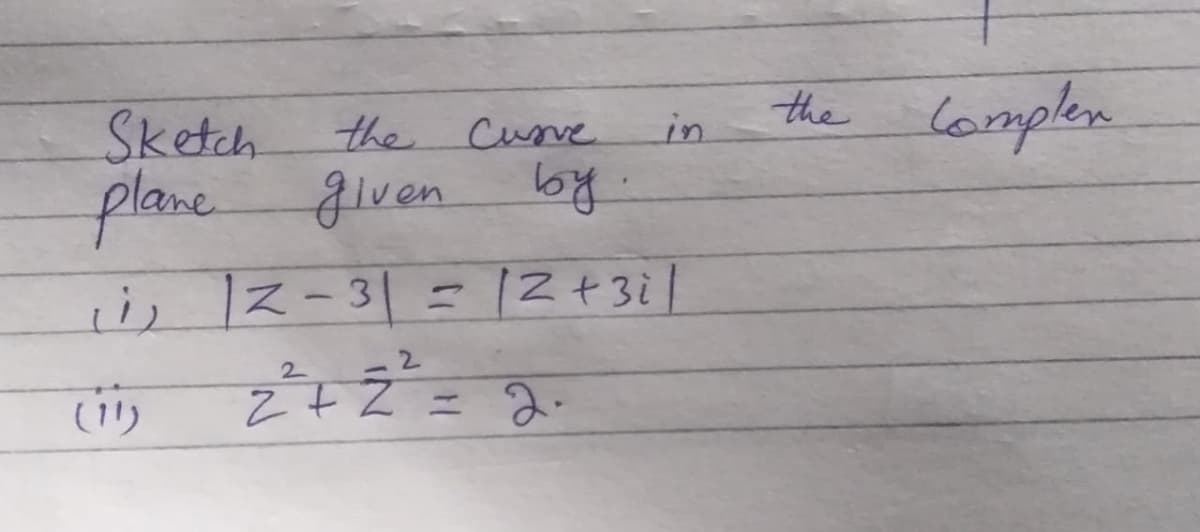 Sketch the curve in the complex
plane given by.
(i) |z-3| = |z+3i|
(ii) z² + z̄² = 2.